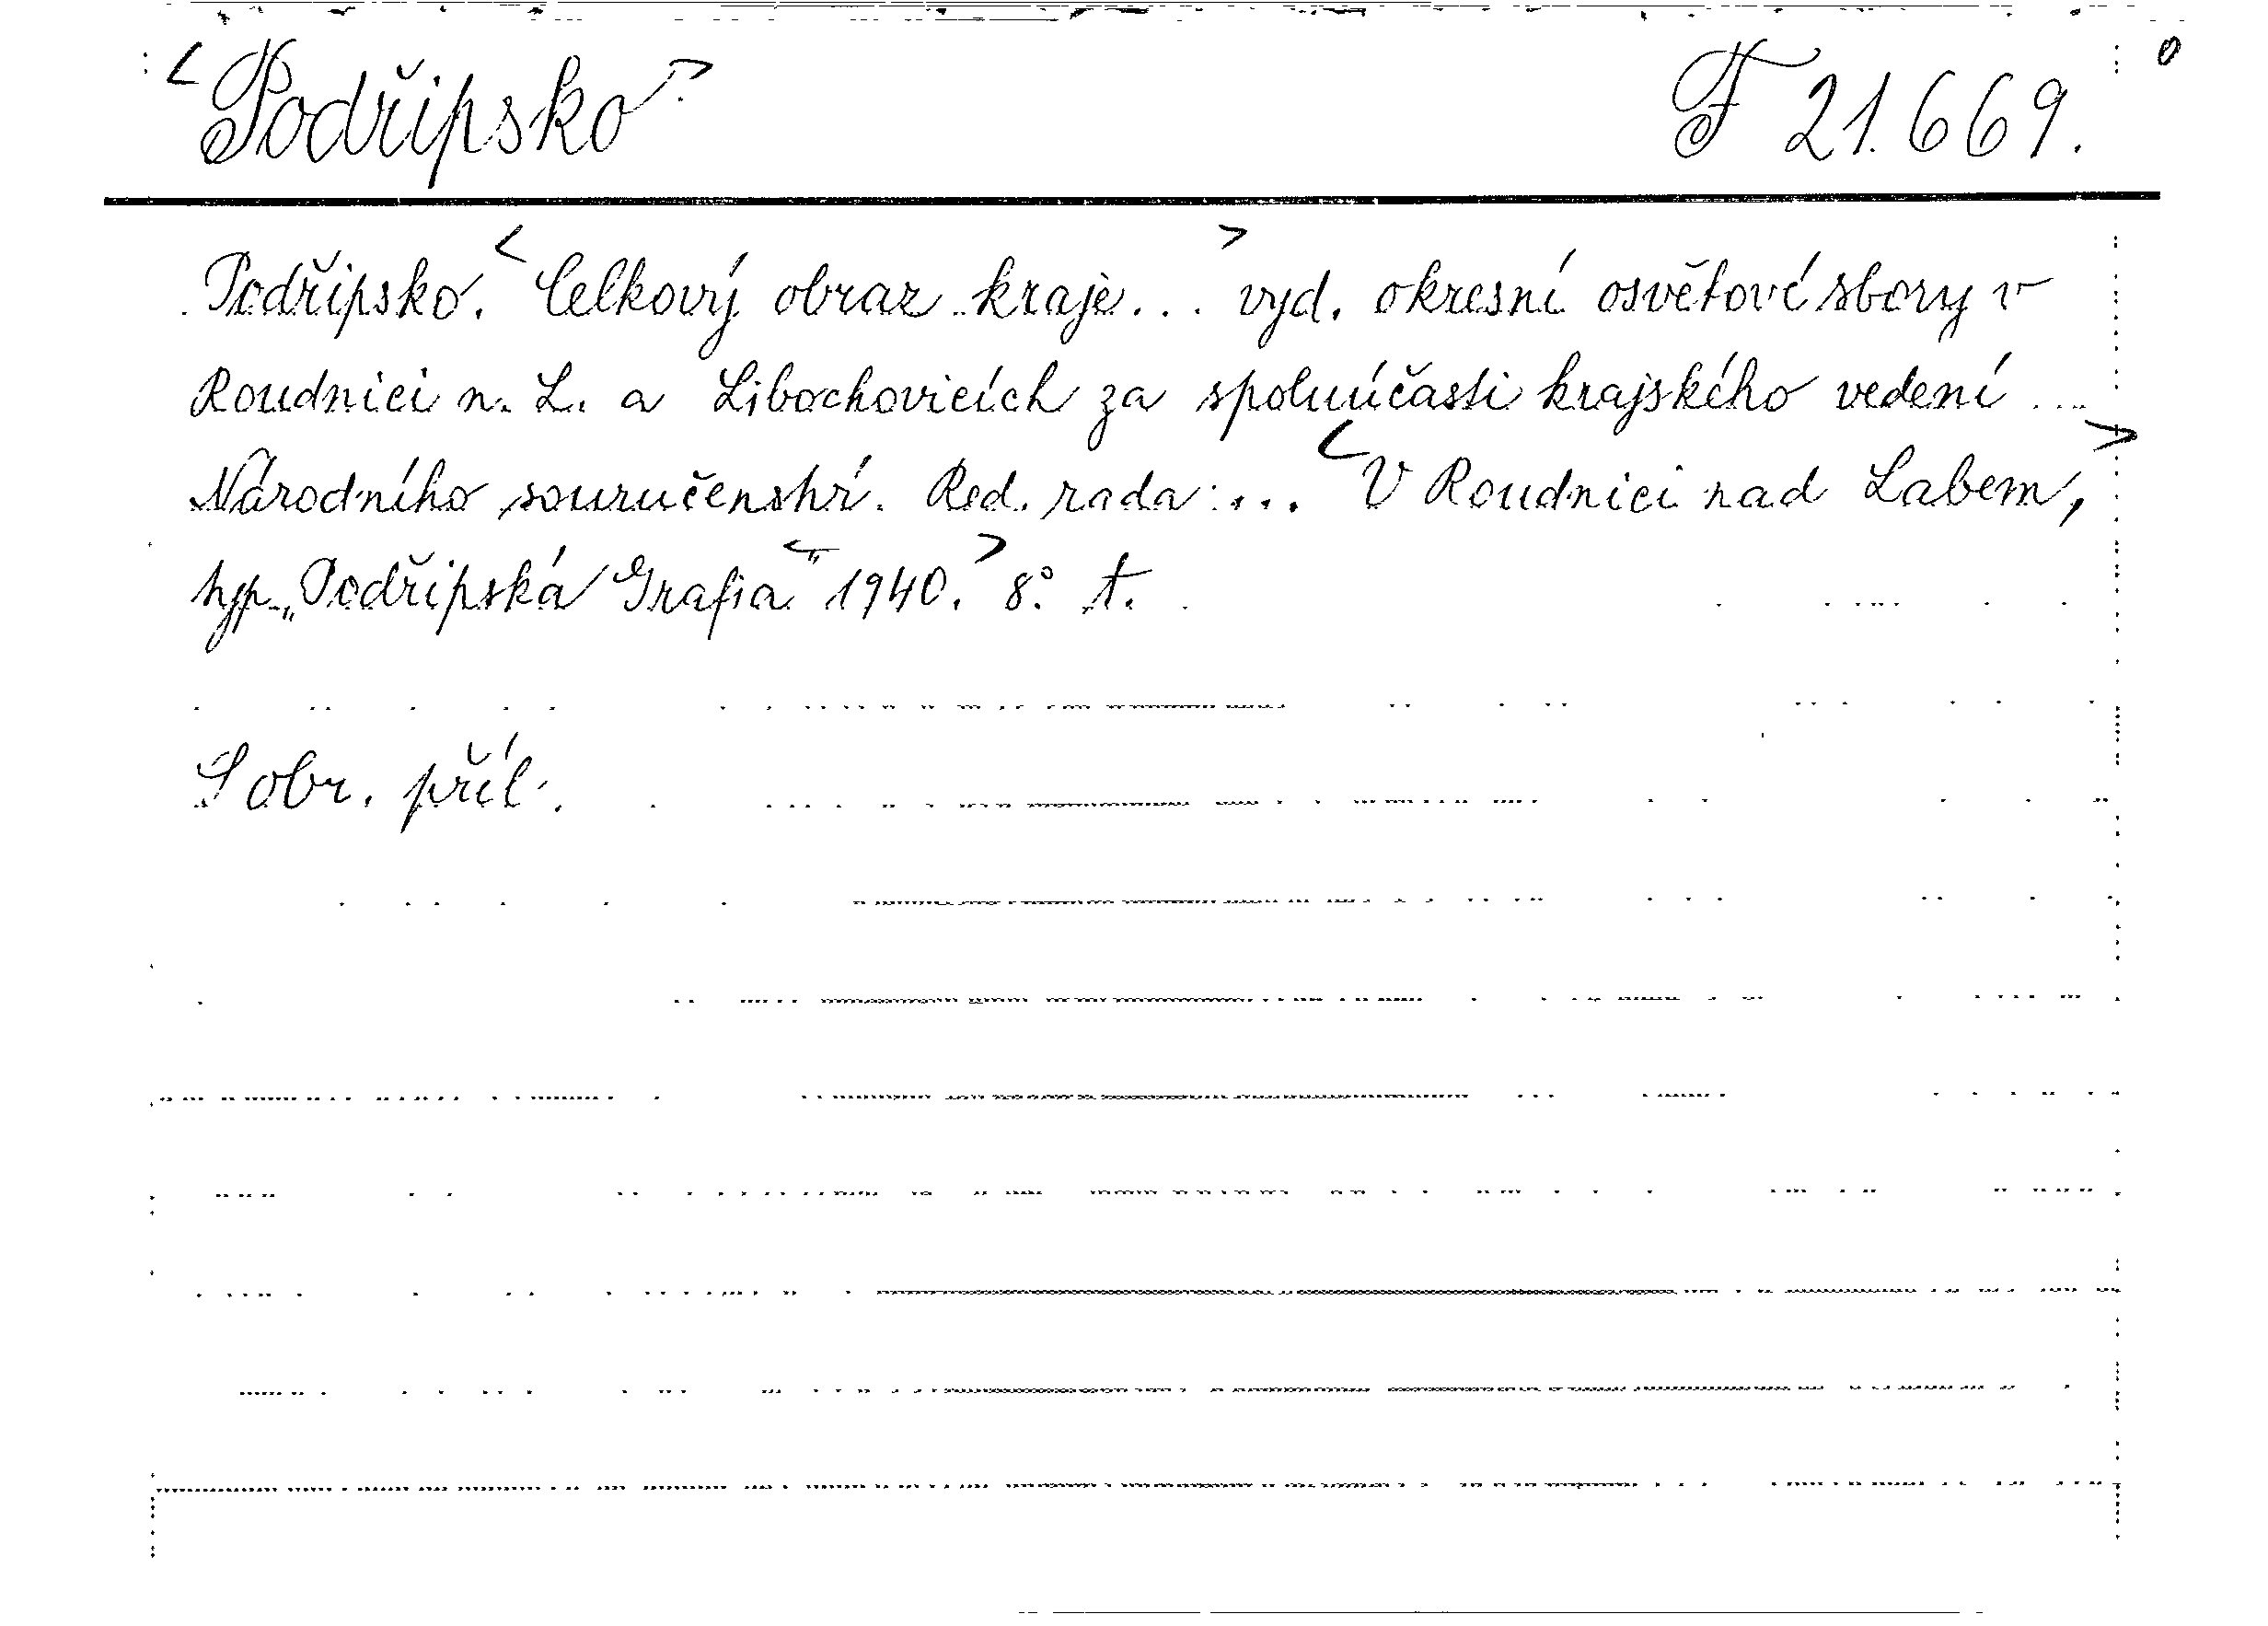 <Podřipsko> F 21.669.
Podřipsko. <Celkový obraz kraje...> vyd. okresní osvětové sbory v
Roudnici n. L. a Libochovicích za spoluúčasti krajského vedení ...
Národního souručenství. Red. rada:... <V Roudnici nad Labem,>
typ. „Podřipská Grafia“ <1940.> 8° t.
S obr. příl.